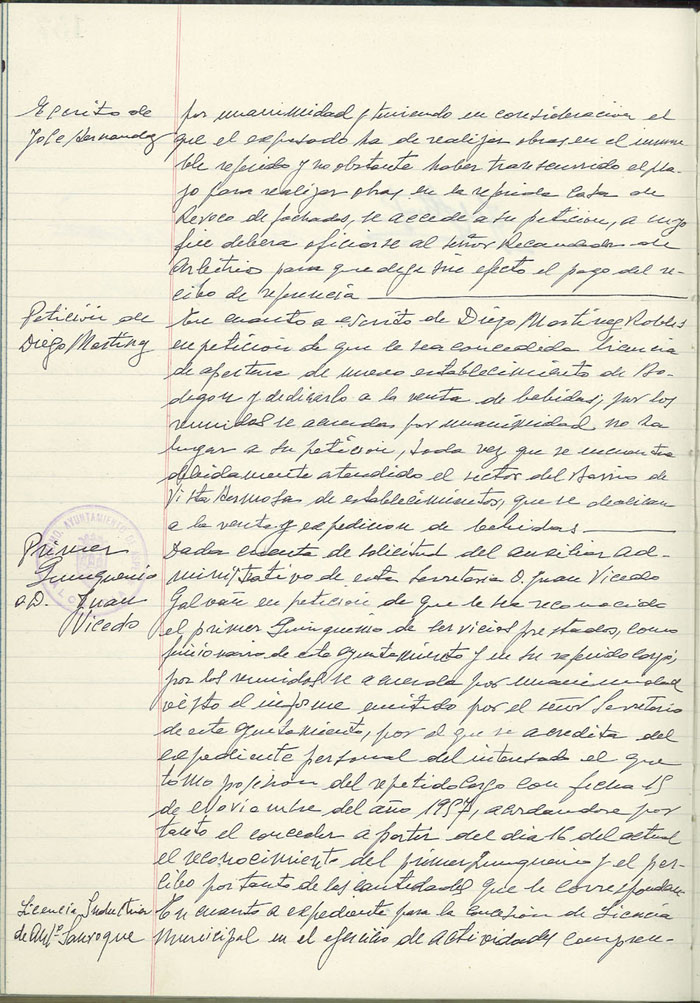 Escrito de
Jose Hernandez
por unanimidad y teniendo en consideracion el
que el expresado ha de realizar obras en el inmue-
ble referido y no obstante haber transcurrido el pla-
zo para realizar obras en la referida Casa de
Revoco de fachadas, se accede a su peticion, a cuyo
fin debera oficiarse al señor Recaudador de
Arbitrios para que deje sin efecto el pago del re-
cibo de referencia
Petición de
Diego Martinez
En cuanto a escrito de Diego Martinez Robles
en peticion de que le sea concedida licencia
de apertura de nuevo establecimiento de Bo-
degon y dedicarlo a la venta de bebidas; por los
reunidos se acuerda por unanimidad no ha
lugar a su petición, toda vez que se encuentra
debidamente atendido el sector del Barrio de
Vista Hermosa de establecimientos, que se dedican
a la venta y expedicion de bebidas
AYUNTAMIENTO DE
Primer
Quinquenio
a D. Juan
Vicedo
Dada cuenta de solicitud del auxiliar ad-
ministrativo de esta Secretaria D. Juan Vicedo
Galvañ en petición de que le sea reconocido
el primer Quinquenio de servicios prestados, como
funcionario de este Ayuntamiento y en su referido cargo,
por los reunidos se acuerda por unanimidad
visto el informe emitido por el señor Secretario
de este Ayuntamiento, por el que se acredita del
expediente personal del interesado el que
tomo posesion del repetido cargo con fecha 15
de Noviembre del año 1957, acordandose por
tanto el conceder a partir del dia 16 del actual
el reconocimiento del primer Quinquenio y el per-
cibo por tanto de las cantidades que le correspondan
Licencia Industria
de Antº Sanroque
En cuanto a expediente para la concesion de Licencia
Municipal en el ejercicio de actividades compren-